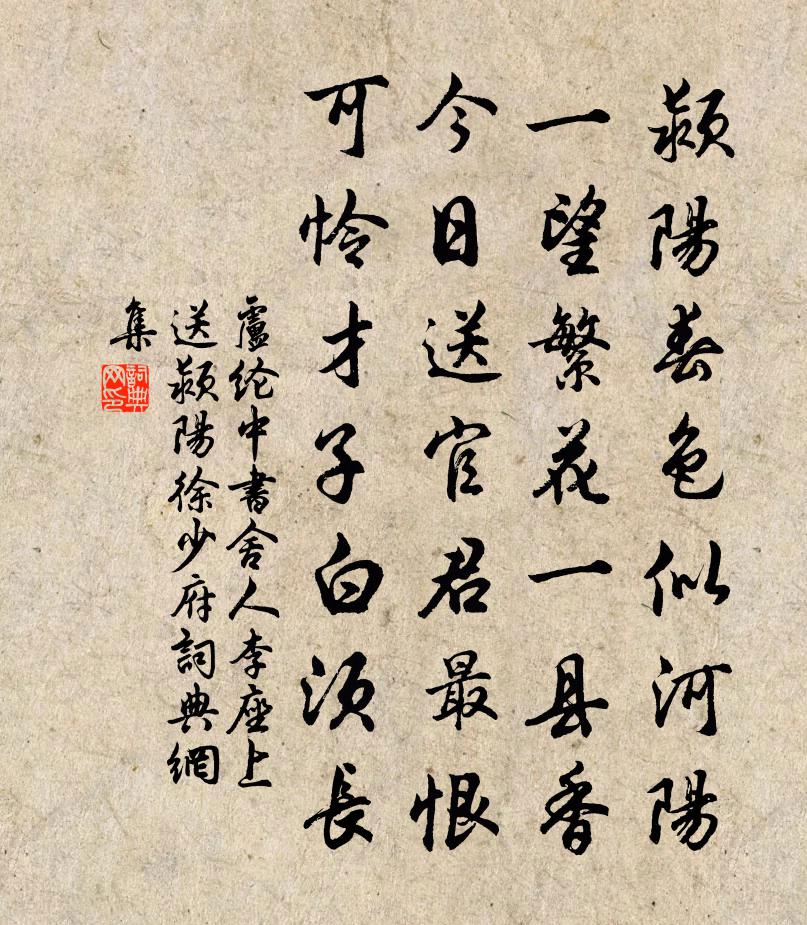 颍陽春色似河陽
一望繁花一县香
今日送官君最恨
可怜才子白须長
盧纶中書舍人李座上
送颍陽徐少府詞典網
集
詞典
网印